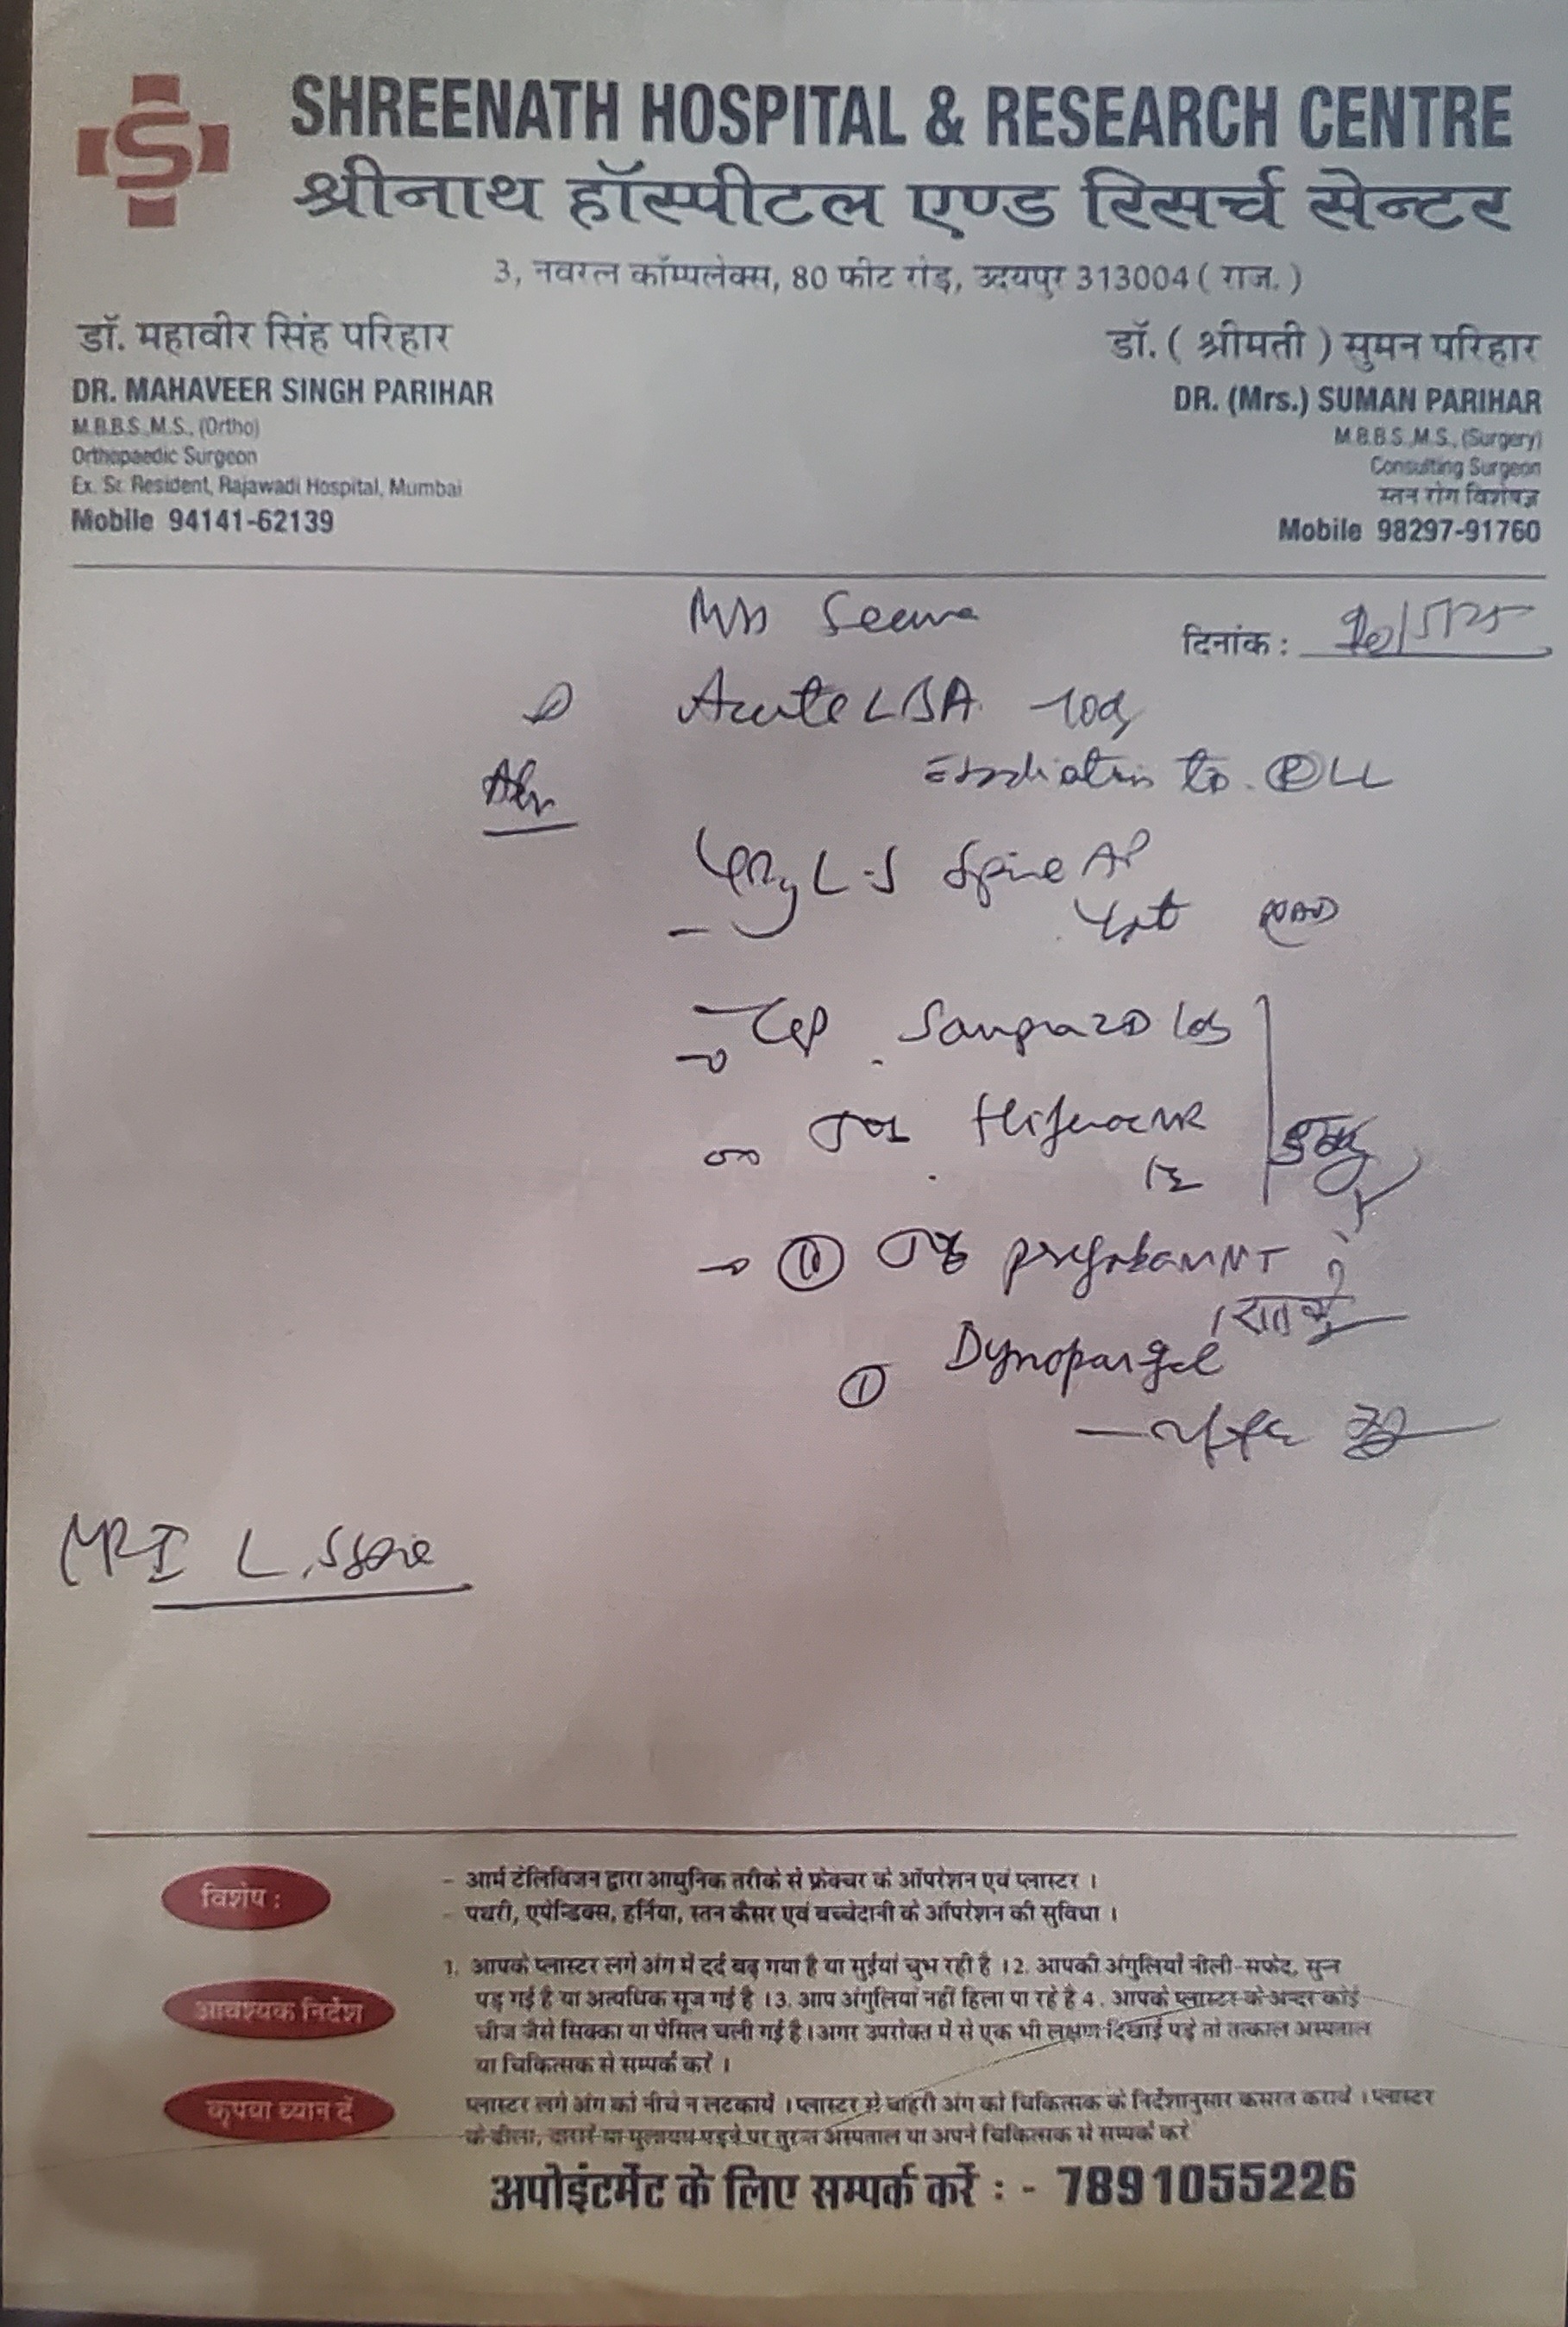 SHREENATH HOSPITAL & RESEARCH CENTRE
श्रीनाथ हॉस्पीटल एण्ड रिसर्च सेन्टर
3, नवरत्न कॉम्पलेक्स, 80 फीट रोड़, उदयपुर 313004 ( राज. )
डॉ. महावीर सिंह परिहार
DR. MAHAVEER SINGH PARIHAR
M.B.B.S.,M.S., (Ortho)
Orthopaedic Surgeon
Ex. Sr. Resident, Rajawadi Hospital, Mumbai
Mobile 94141-62139
डॉ. ( श्रीमती ) सुमन परिहार
DR. (Mrs.) SUMAN PARIHAR
M.B.B.S.,M.S., (Surgery)
Consulting Surgeon
स्तन रोग विशेषज्ञ
Mobile 98297-91760
Seema
दिनांक :
Acute LBA
to. Ⓡ LL
L-S Spine AP
Lat
Cap
Hifenac MR
Pregabam NT
रात को
① Dynapar gel
MRI L.Spine
विशेष :
- आर्म टेलिविजन द्वारा आधुनिक तरीके से फ्रेक्चर के ऑपरेशन एवं प्लास्टर ।
- पथरी, एपेन्डिक्स, हर्निया, स्तन कैंसर एवं बच्चेदानी के ऑपरेशन की सुविधा ।
आवश्यक निर्देश
1. आपके प्लास्टर लगे अंग में दर्द बढ़ गया है या सुईयां चुभ रही है । 2. आपकी अंगुलियाँ नीली-सफेद, सुन्न
पड़ गई है या अत्यधिक सूज गई है । 3. आप अंगुलियां नहीं हिला पा रहे है 4 . आपके प्लास्टर के अन्दर कोई
चीज जैसे सिक्का या पेंसिल चली गई है। अगर उपरोक्त में से एक भी लक्षण दिखाई पड़े तो तत्काल अस्पताल
या चिकित्सक से सम्पर्क करें ।
कृपया ध्यान दें
प्लास्टर लगे अंग को नीचे न लटकायें । प्लास्टर से बाहरी अंग को चिकित्सक के निर्देशानुसार कसरत करावें । प्लास्टर
के ढीला, दारारें या मुलायम पड़ने पर तुरन्त अस्पताल या अपने चिकित्सक से सम्पर्क करें
अपोइंटमेंट के लिए सम्पर्क करें : - 7891055226